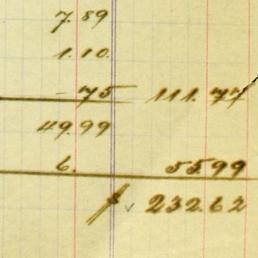 7.89
1.10.
-75 111.77
49.99
6. 55.99
$ 232.62